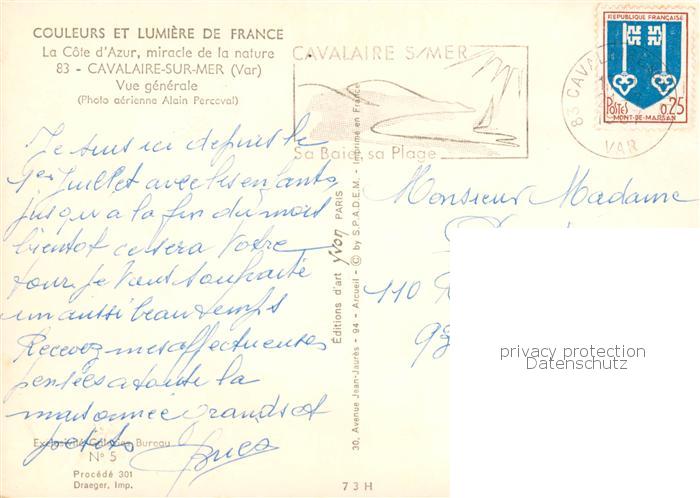 COULEURS ET LUMIÈRE DE FRANCE
La Côte d'Azur, miracle de la nature
83 - CAVALAIRE-SUR-MER (Var)
Vue générale
(Photo aérienne Alain Perceval)
CAVALAIRE S/MER
Sa Baie, sa Plage
RÉPUBLIQUE FRANÇAISE
POSTES 0,25
MONT-DE-MARSAN
83 CAVAL
VAR
Je suis ici depuis le
1er Juillet avec les enfants
jusqu'a la fin du mois
bientot ce sera Votre
tour je Vous souhaite
un aussi beau temps
Recevez mes affectueuses
pensées a toute la
maisonnée grands et
petits
Exclusivité Galeries Bureau
N° 5
Procédé 301
Draeger, Imp.
73H
Éditions d'art yvon PARIS
30, Avenue Jean-Jaurès - 94 - Arcueil - © by S.P.A.D.E.M. - Imprimé en France
Monsieur Madame
110
privacy protection
Datenschutz